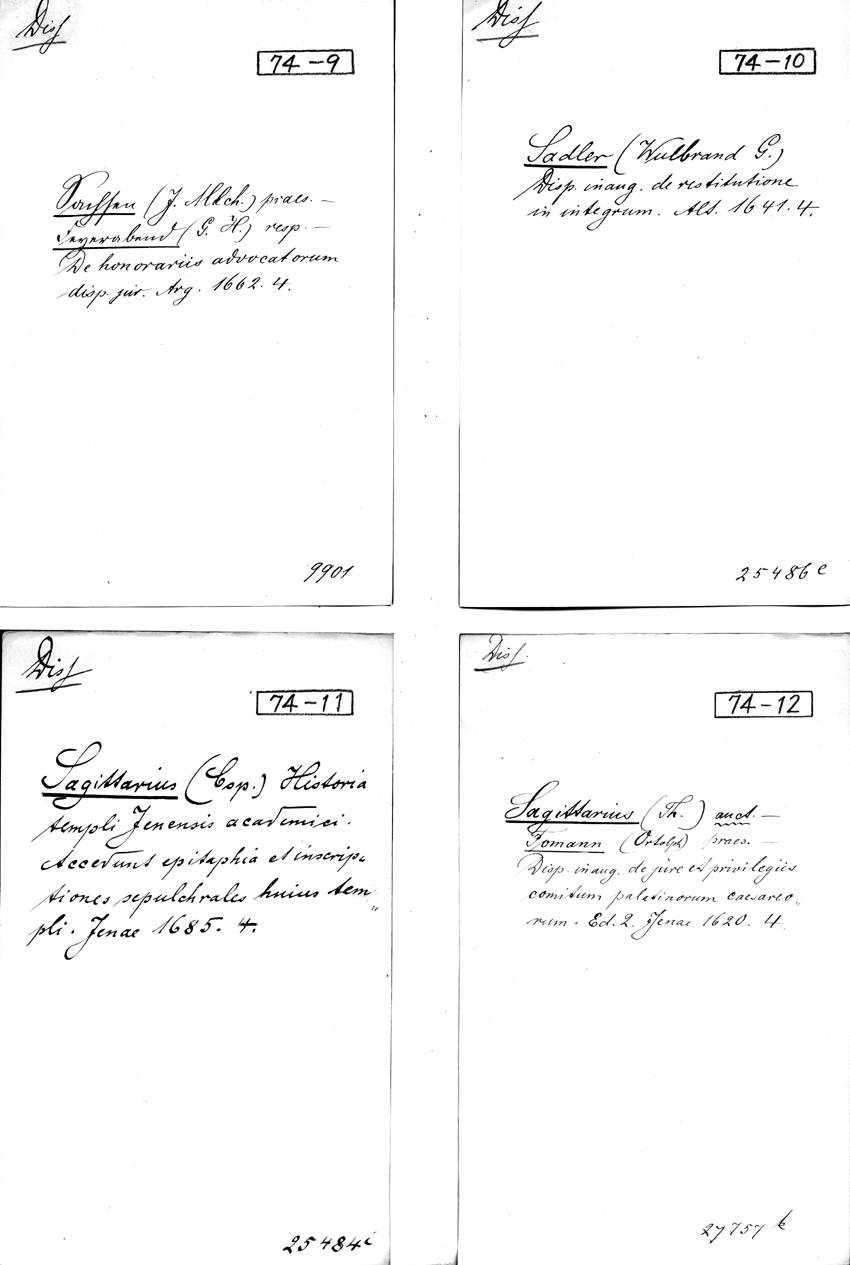 Diss
74-9
Sachsen (J. Mlch.) praes. —
Feyerabend (G. H.) resp. —
De honorariis advocatorum
disp. jur. Arg. 1662. 4.
9901
Diss
74-10
Sadler (Wulbrand G.)
Disp. inaug. de restitutione
in integrum. Alt. 1641. 4.
25486 c
Diss
74-11
Sagittarius (Csp.) Historia
templi Jenensis academici.
Accedunt epitaphia et inscrip-
tiones sepulchrales huius tem„
pli. Jenae 1685. 4.
25484 i
Diss.
74-12
Sagittarius (Th.) auct. —
Fomann (Ortolph) praes. —
Disp. inaug. de jure et privilegiis
comitum palatinorum caesareo„
rum. Ed. 2. Jenae 1620. 4.
27757 k